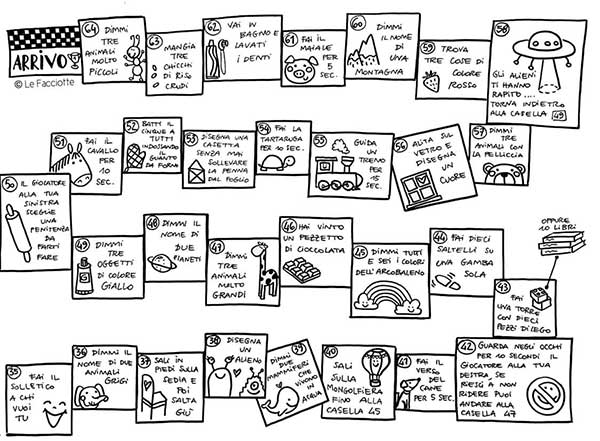 ARRIVO
© Le Facciotte
64 DIMMI
TRE
ANIMALI
MOLTO
PICCOLI
63
MANGIA
TRE
CHICCHI
DI RISO
CRUDI
62 VAI IN
BAGNO E
LAVATI
I DENTI
61 FAI IL
MAIALE
PER 5
SEC.
60 DIMMI
IL NOME
DI
UNA
MONTAGNA
59 TROVA
TRE COSE DI
COLORE
ROSSO
58
GLI ALIENI
TI HANNO
RAPITO....
TORNA INDIETRO
ALLA CASELLA 49
57 DIMMI
TRE
ANIMALI CON
LA PELLICCIA
56 ALITA SUL
VETRO E
DISEGNA
UN
CUORE
55 GUIDA
UN
TRENO
PER
15
SEC.
54 FAI LA
TARTARUGA
PER 10 SEC.
53 DISEGNA UNA
CASETTA
SENZA MAI
SOLLEVARE
LA PENNA
DAL FOGLIO
52 BATTI IL
CINQUE A
TUTTI
INDOSSANDO
IL
GUANTO
DA FORNO
51 FAI IL
CAVALLO
PER
10
SEC.
50 IL GIOCATORE
ALLA TUA
SINISTRA
SCEGLIE
UNA
PENITENZA
DA
FARTI
FARE
49 DIMMI
TRE
OGGETTI
DI COLORE
GIALLO
48 DIMMI IL
NOME DI
DUE
PIANETI
47
DIMMI
TRE
ANIMALI
MOLTO
GRANDI
46 HAI VINTO
UN PEZZETTO
DI
CIOCCOLATA
45 DIMMI TUTTI
E SEI I COLORI
DELL'ARCOBALENO
44 FAI DIECI
SALTELLI SU
UNA GAMBA
SOLA
OPPURE
10 LIBRI
43 FAI
UNA TORRE
CON DIECI
PEZZI DI LEGO
42 GUARDA NEGLI OCCHI
PER 10 SECONDI IL
GIOCATORE ALLA TUA
DESTRA, SE
RIESCI A NON
RIDERE PUOI
ANDARE ALLA
CASELLA 47
41 FAI IL
VERSO
DEL
CANE
PER 5 SEC.
40
SALI
SULLA
MONGOLFIERA
FINO ALLA
CASELLA 45
39 DIMMI DUE
MAMMIFERI
CHE
VIVONO
IN
ACQUA
38 DISEGNA
UN ALIENO
37 SALI IN
PIEDI SULLA
SEDIA E
POI
SALTA
GIÙ
36 DIMMI IL
NOME DI DUE
ANIMALI
GRIGI
35
FAI IL
SOLLETICO
A CHI
VUOI
TU